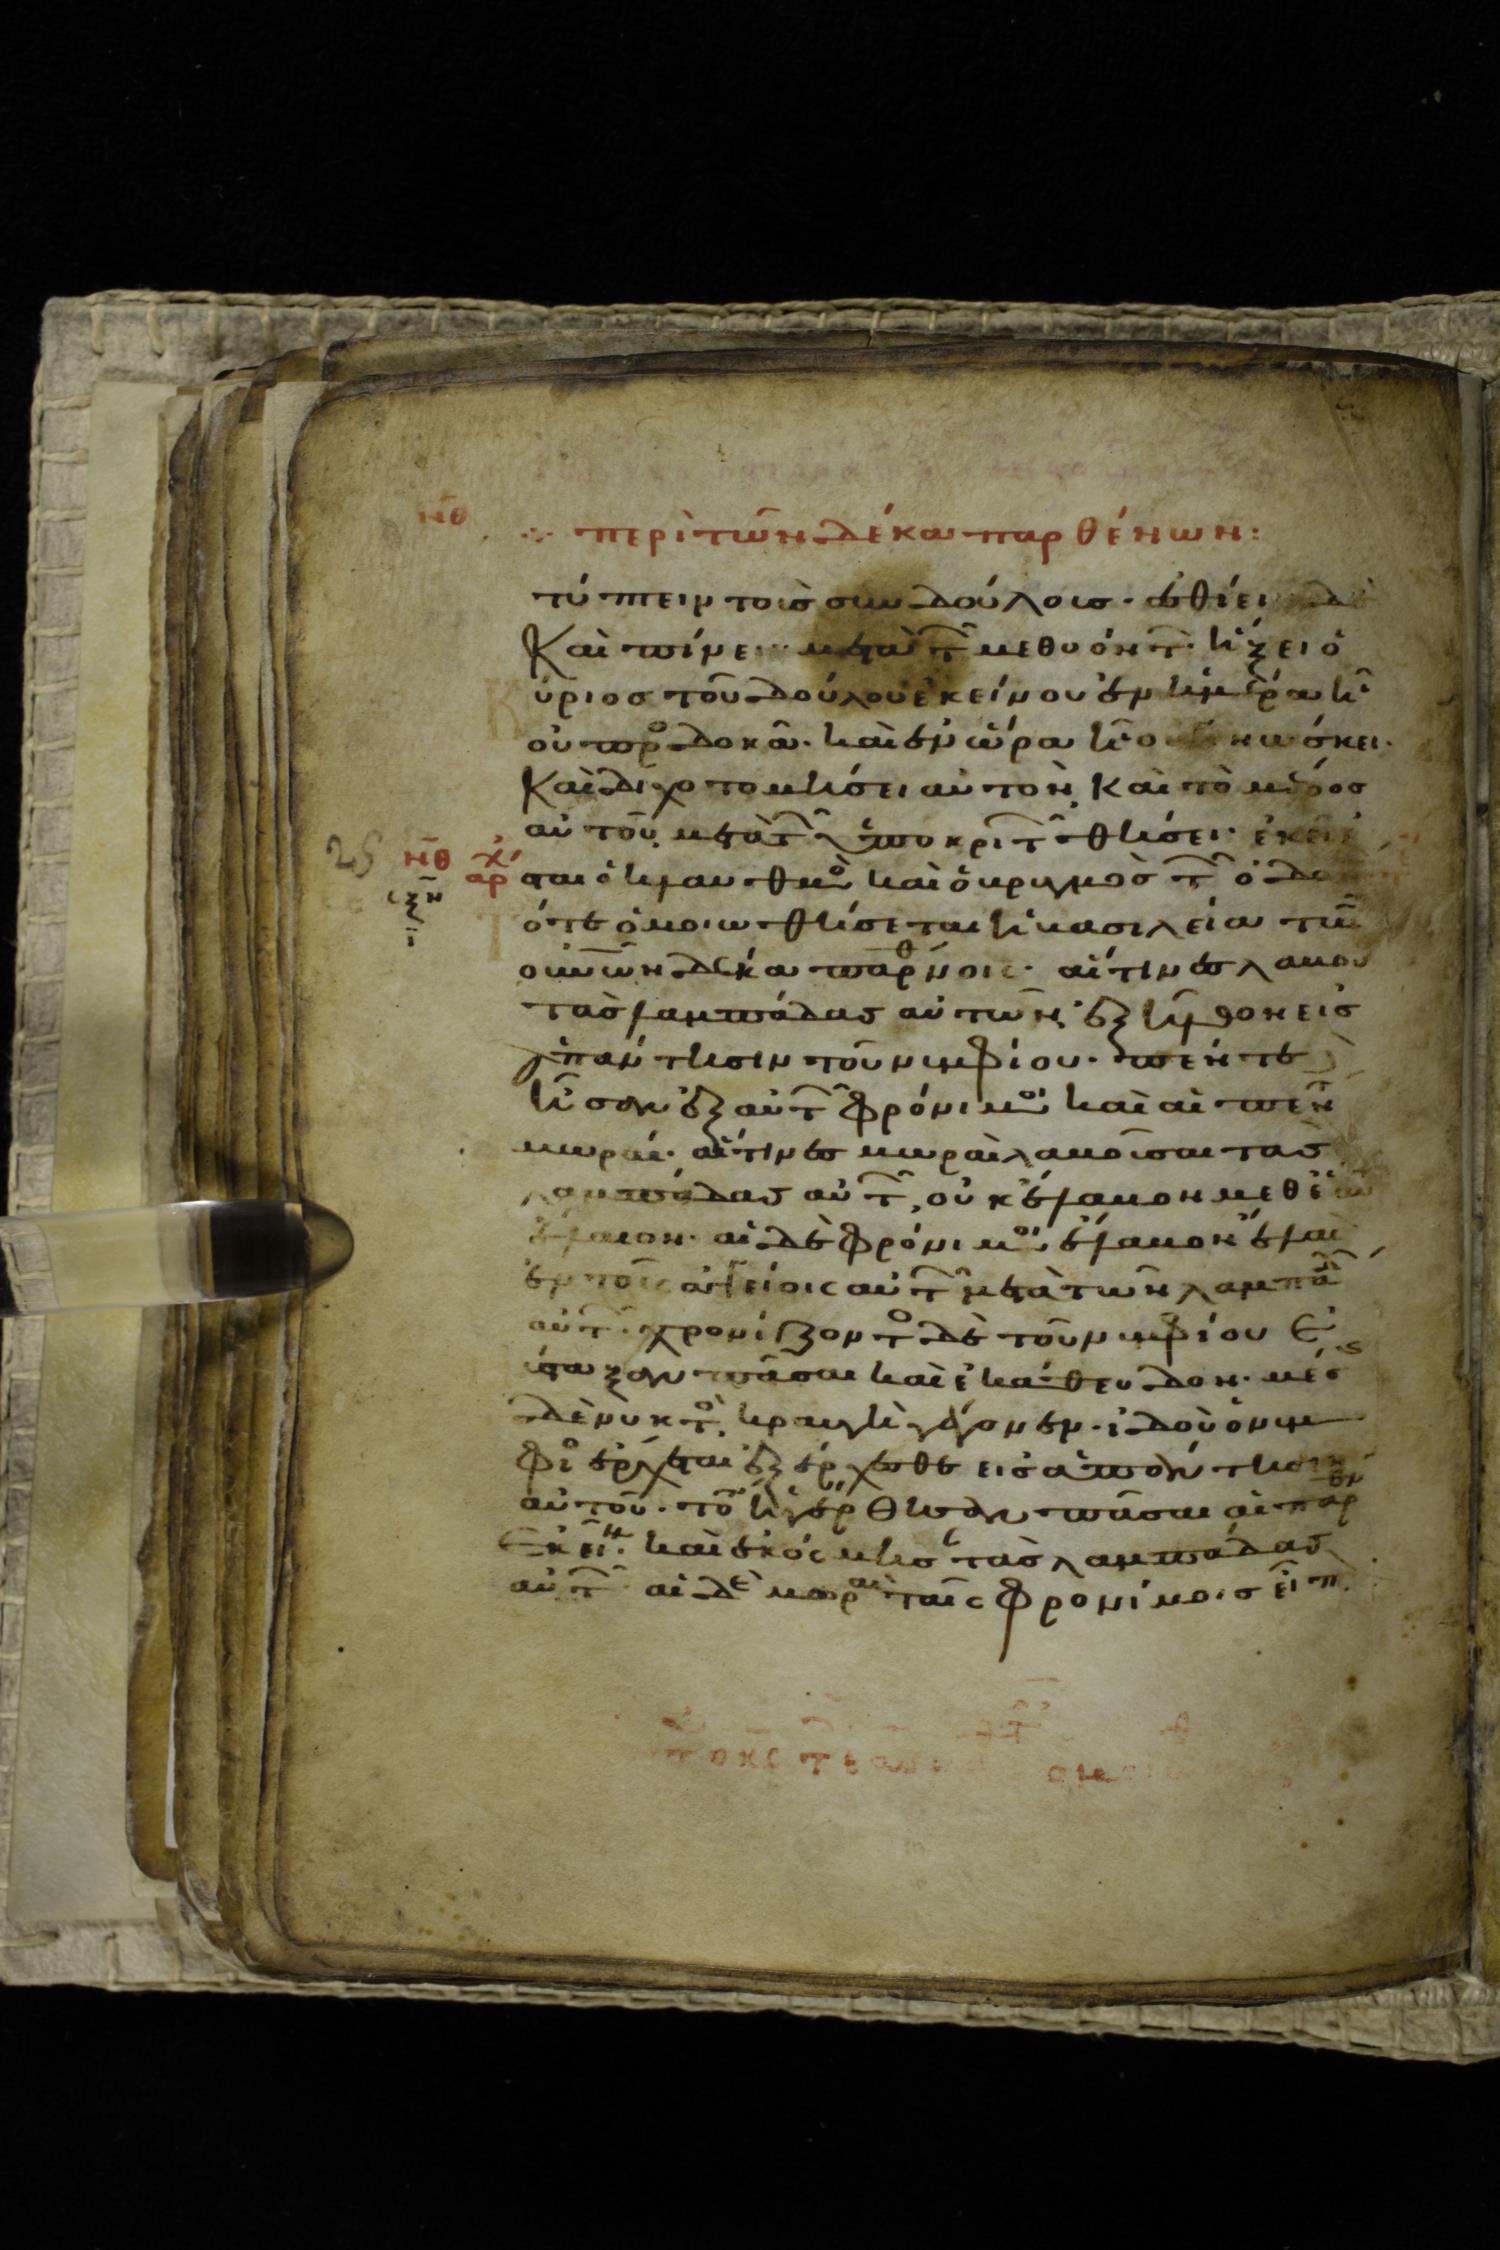 νθ ∴ περὶ τῶν δέκα παρθένων:
τύπτειν τοὺς συνδούλους· ἐσθίει δὲ
καὶ πίνει μετὰ τ μεθυόντ· ἥξει ὁ
ύριος τοῦ δούλου ἐκείνου ἐν ἡμέρα ἧ
οὐ προσδοκᾶ· καὶ ἐν ὥρα ἧ οὐ γινώσκει·
Καὶ διχοτομήσει αὐτὸν, καὶ τὸ μέρος
αὐτοῦ, μετὰ τ ὑποκριτ θήσει· ἐκεῖ ἔ
25 νθ αρχ ται ὁ κλαυθμὸ καὶ ὁ βρυγμὸς τ ὀδον
σξη ότε ὁμοιωθήσεται ἡ βασιλεία τῶν
οὐνῶν δέκα παρθένοις· αἵτινες λαβοῦ
τὰς λαμπάδας αὐτῶν, ἐξῆλθον εἰς
ἀπάντησιν τοῦ νυμφίου· πέντε
ἦσαν ἐξ αὐτ φρόνιμοι καὶ αἱ πέν
μωραί· αἵτινες μωραὶ λαβοῦσαι τὰς
λαμπάδας αὐτ, οὐκ ἔλαβον μεθ' ἑαυ
ἔλαιον· αἱ δὲ φρόνιμοι ἔλαβον ἔλαι
ἐν τοῖς ἀγγείοις αὐτ μετὰ τῶν λαμπά
αὐτ· χρονίζοντο δὲ τοῦ νυμφίου ἐ
ύσταξαν πᾶσαι καὶ ἐκάθευδον· μέσ
δὲ νυκτὸ, κραυγὴ γέγονεν· ἰδοὺ ὁ νυμ
φίο ἔρχεται ἐξέρχεσθε εἰς ἀπάντησιν
αὐτοῦ· το ἠγέρθησαν πᾶσαι αἱ παρθέν
ἐκεῖν· καὶ ἐκόσμησ τὰς λαμπάδας
αὐτ· αἱ δὲ μωραὶ ταῖς φρονίμοις εἶπ